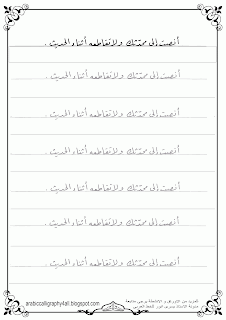 أنصت إلى محدثك ولا تقاطعه أثناء الحديث .
أنصت إلى محدثك ولا تقاطعه أثناء الحديث .
أنصت إلى محدثك ولا تقاطعه أثناء الحديث .
أنصت إلى محدثك ولا تقاطعه أثناء الحديث .
أنصت إلى محدثك ولا تقاطعه أثناء الحديث .
أنصت إلى محدثك ولا تقاطعه أثناء الحديث .
أنصت إلى محدثك ولا تقاطعه أثناء الحديث .
للمزيد من
arabiccalligraphy4all.blogspot.com